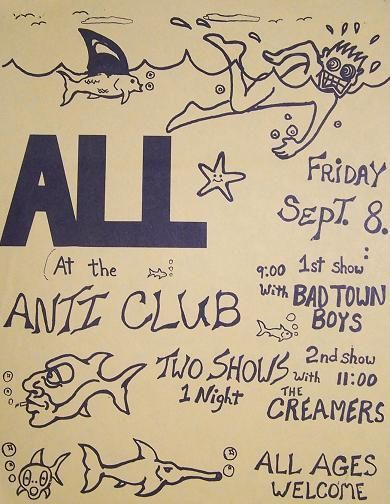 ALL
FRIDAY
SEPT. 8.
At the
ANTI CLUB
9:00 1st show:
with BAD TOWN
BOYS
TWO SHOWS
1 Night
2nd show
with 11:00
THE
CREAMERS
ALL AGES
WELCOME